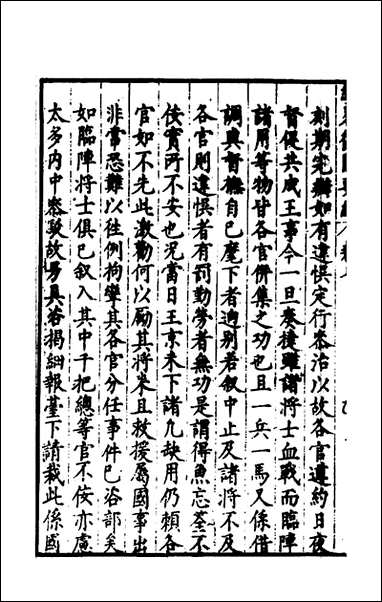 刻期完辦如有違悞定行叅治以故各官遵約日夜
督促共成王事今一旦奏捷雖諸將士血戰而臨陣
諸用等物皆各官併集之功也且一兵一馬又係借
調與督標自已麾下者逈別若叙中止及諸將不及
各官則違悞者有罰勤勞者無功是謂得魚忘荃不
佞實所不安也况當日王京未下諸凢缺用仍頼各
官如不先此激勸何以勵其將來且救援屬國事出
非常恐難以徃例拘攣其各官分任事件已咨部矣
如臨陣將士俱已叙入其中千把總等官不佞亦慮
太多内中叅駁故另具咨揭細報䑓下請裁此係國